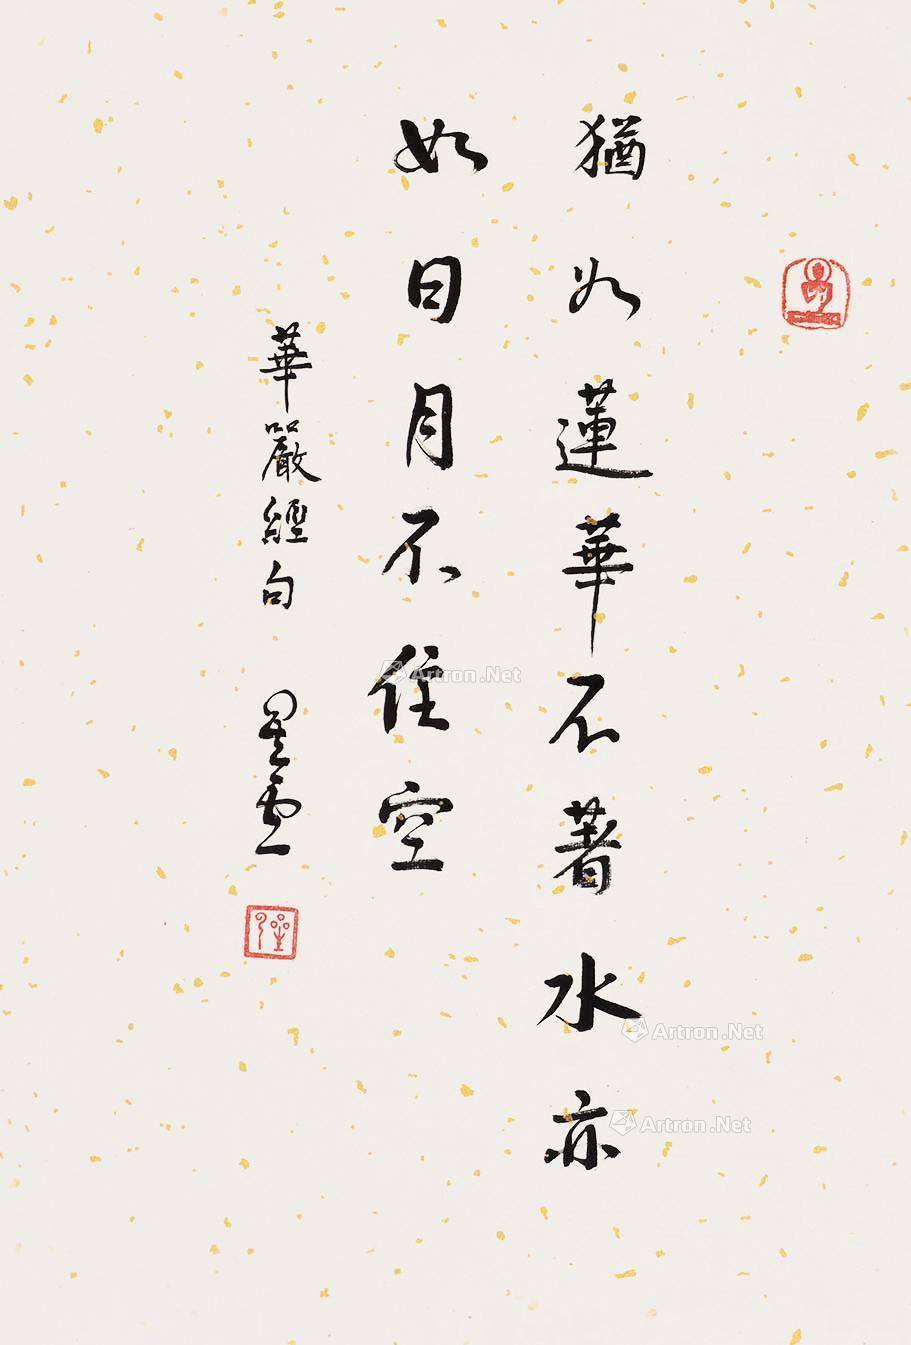 猶如蓮華不著水亦
如日月不住空
華嚴經句 星雲
Artron.Net
Artron.Net
Artron.Net